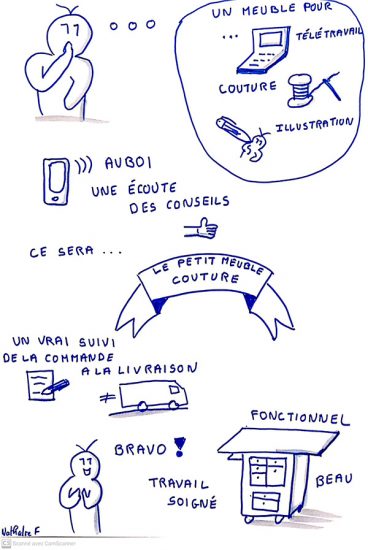 UN MEUBLE POUR
... TÉLÉTRAVAIL
COUTURE
ILLUSTRATION
AUBOI
UNE ÉCOUTE
DES CONSEILS
CE SERA ...
LE PETIT MEUBLE
COUTURE
UN VRAI SUIVI
DE LA COMMANDE
A LA LIVRAISON
FONCTIONNEL
BRAVO !
BEAU
TRAVAIL
SOIGNÉ
Nathalie F
CS Scanné avec CamScanner